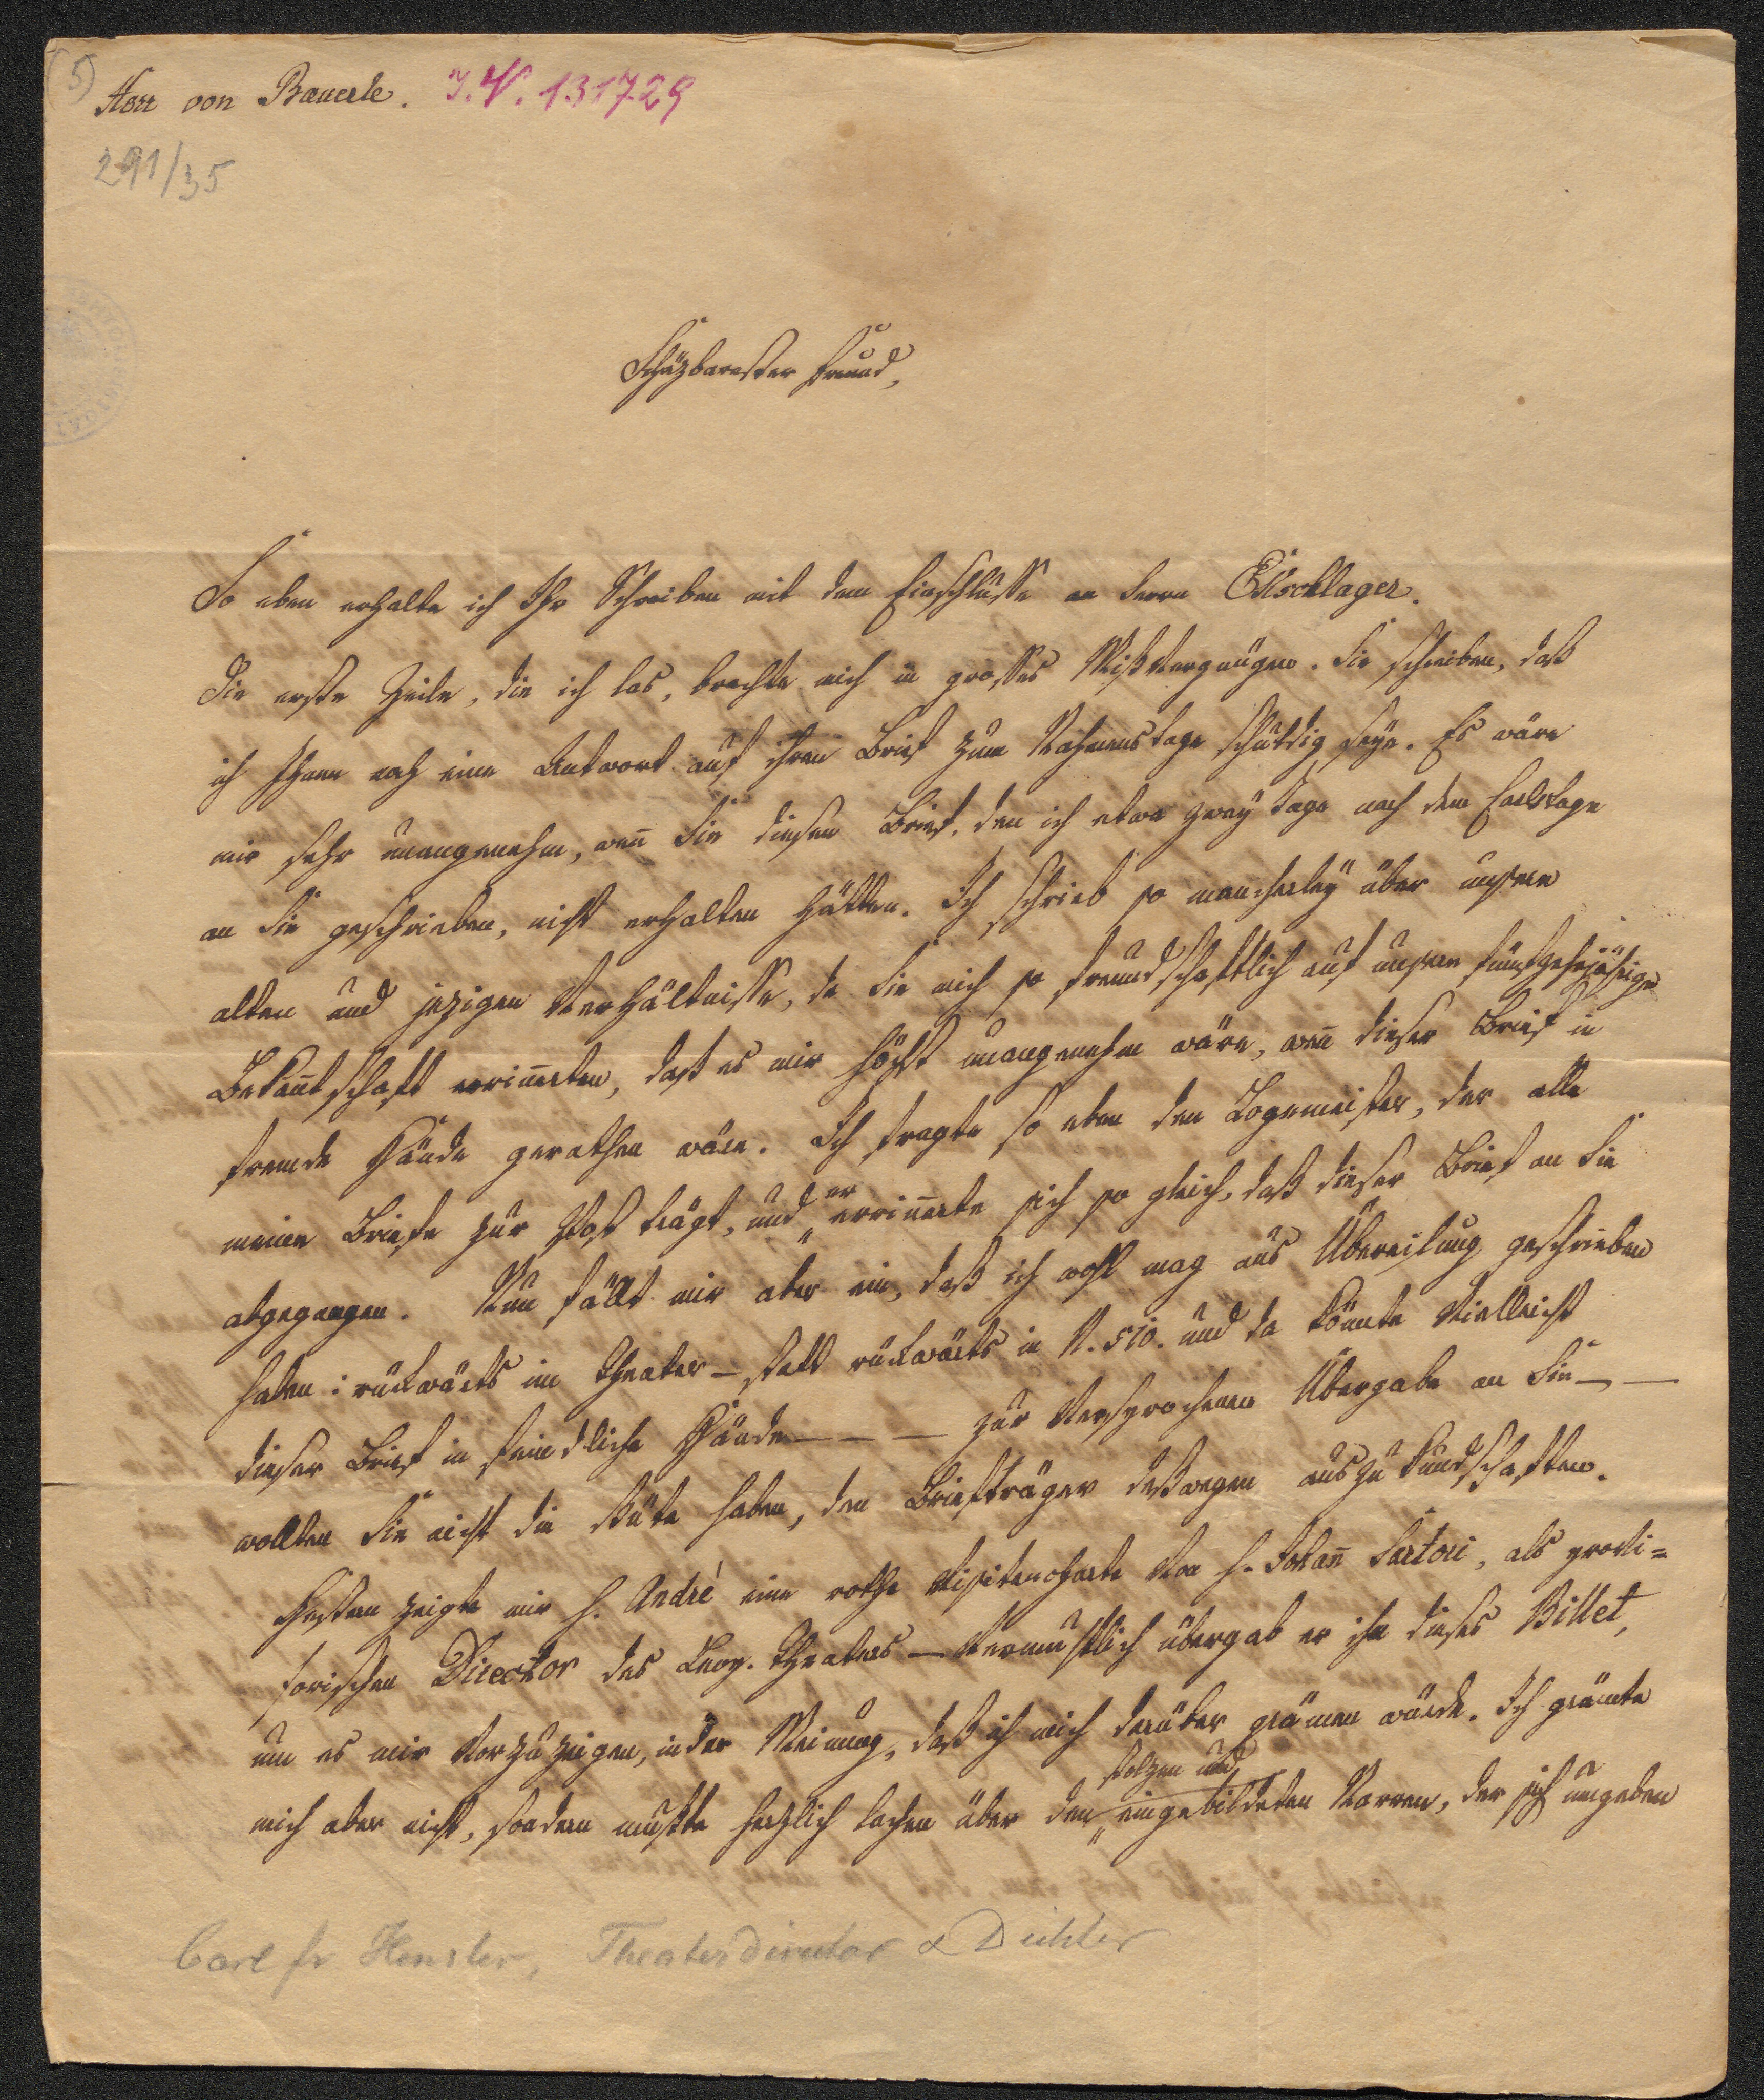 (5)
Herr von Bäuerle. I.N. 131729
291/35
Schäzbarester Freund,
So eben erhalte ich Ihr Schreiben mit dem Einschlusse an Herrn Ellschlager.
Die erste Zeile, die ich las, brachte mich in grosses Mißvergnügen. Sie schreiben, daß
ich Ihnen noch eine Antwort auf ihren Brief zum Nahmenstage schuldig seye. Es wäre
mir sehr unangenehm, wen̄ Sie diesen Brief, den ich etwa zwey Tage nach dem Carlstage
an Sie geschrieben, nicht erhalten hätten. Ich schrieb so mancherley über unsere
alten und jezigen Verhältnisse, da Sie mich so freundschaftlich auf unsere fünfzehnjährige
Bekan̄tschaft errin̄erten, daß es mir höchst unangenehm wäre, wen̄ dieser Brief in
fremde Hände gerathen wäre. Ich fragte so eben den Logemeister, der alle
meine Briefe zur Post trägt, und er errin̄erte sich so gleich, daß dieser Brief an Sie
abgegangen. Nun fällt mir aber ein, daß ich wohl mag aus Übereilung geschrieben
haben: rückwärts im Theater – statt rückwärts in N. 510. und da könnte vielleicht
dieser Brief in feindliche Hände – – – zur versprochenen Übergabe an Sie – –
wollten Sie nicht die Güte haben, den Briefträger deßwegen auszukundschaften.
Gestern zeigte mir H. Andrè eine rothe Visitencharte von H. Johan̄ Sartori, als provi=
sorischen Director des Leop. Theaters – vermuthlich übergab er ihm dieses Billet,
um es mir vorzuzeigen, in der Meinung, daß ich mich darüber grämen würde. Ich grämte
mich aber nicht, sondern mußte herzlich lachen über den stolzen und eingebildeten Narren, der sich umgeben
Carl Fr Hensler, Theaterdirektor & Dichter